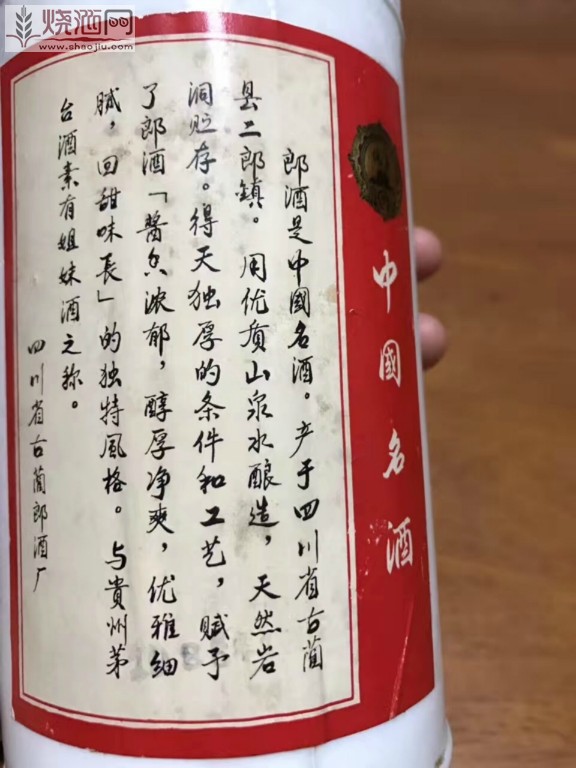 烧酒网
www.shaojiu.com
中國名酒
郎酒是中國名酒。产于四川省古藺
县二郎镇。用优质山泉水酿造，天然岩
洞贮存。得天独厚的条件和工艺，赋予
了郎酒「醬香浓郁，醇厚净爽，优雅细
腻，回甜味長」的独特風格。与貴州茅
台酒素有姐妹酒之称。
四川省古藺郎酒厂